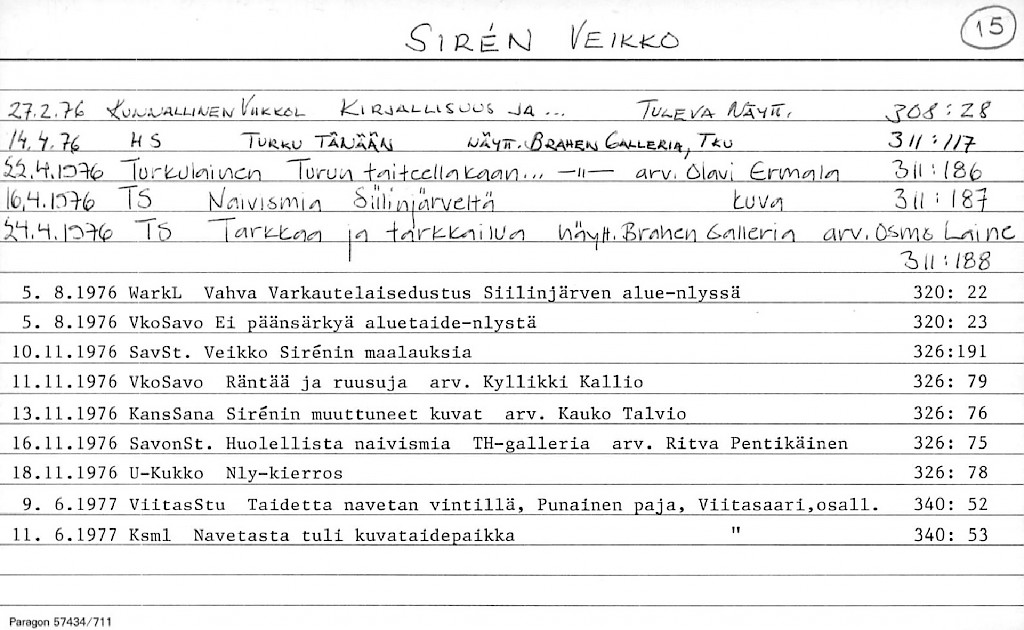 SIRÉN VEIKKO 15
27.2.76 KUNNALLINEN VIIKKOL KIRJALLISUUS JA... TULEVA NÄYTT. 308:28
14.4.76 HS TURKU TÄNÄÄN NÄYTT. BRAHEN GALLERIA, TKU 311:117
22.4.1976 Turkulainen Turun taiteellakaan... —"— arv. Olavi Ermala 311:186
16.4.1976 TS Naivismia Siilinjärveltä kuva 311:187
24.4.1976 TS Tarkkaa ja tarkkailua näytt. Brahen Galleria arv. Osmo Laine
311:188
5. 8.1976 WarkL Vahva Varkautelaisedustus Siilinjärven alue-nlyssä 320: 22
5. 8.1976 VkoSavo Ei päänsärkyä aluetaide-nlystä 320: 23
10.11.1976 SavSt. Veikko Sirénin maalauksia 326:191
11.11.1976 VkoSavo Räntää ja ruusuja arv. Kyllikki Kallio 326: 79
13.11.1976 KansSana Sirénin muuttuneet kuvat arv. Kauko Talvio 326: 76
16.11.1976 SavonSt. Huolellista naivismia TH-galleria arv. Ritva Pentikäinen 326: 75
18.11.1976 U-Kukko Nly-kierros 326: 78
9. 6.1977 ViitasStu Taidetta navetan vintillä, Punainen paja, Viitasaari,osall. 340: 52
11. 6.1977 Ksml Navetasta tuli kuvataidepaikka " 340: 53
Paragon 57434/711